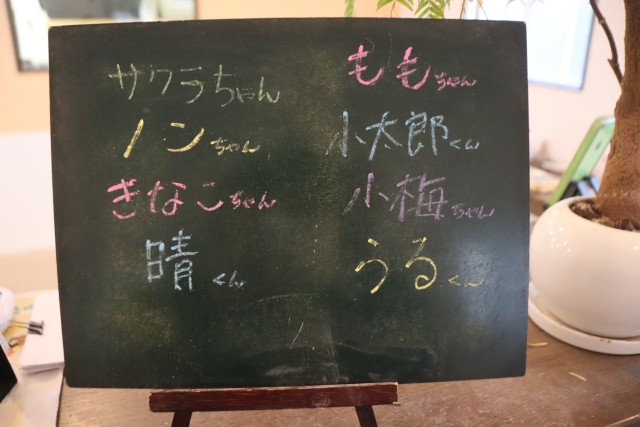 サクラちゃん
ノンちゃん
きなこちゃん
晴くん
ももちゃん
小太郎くん
小梅ちゃん
うるくん